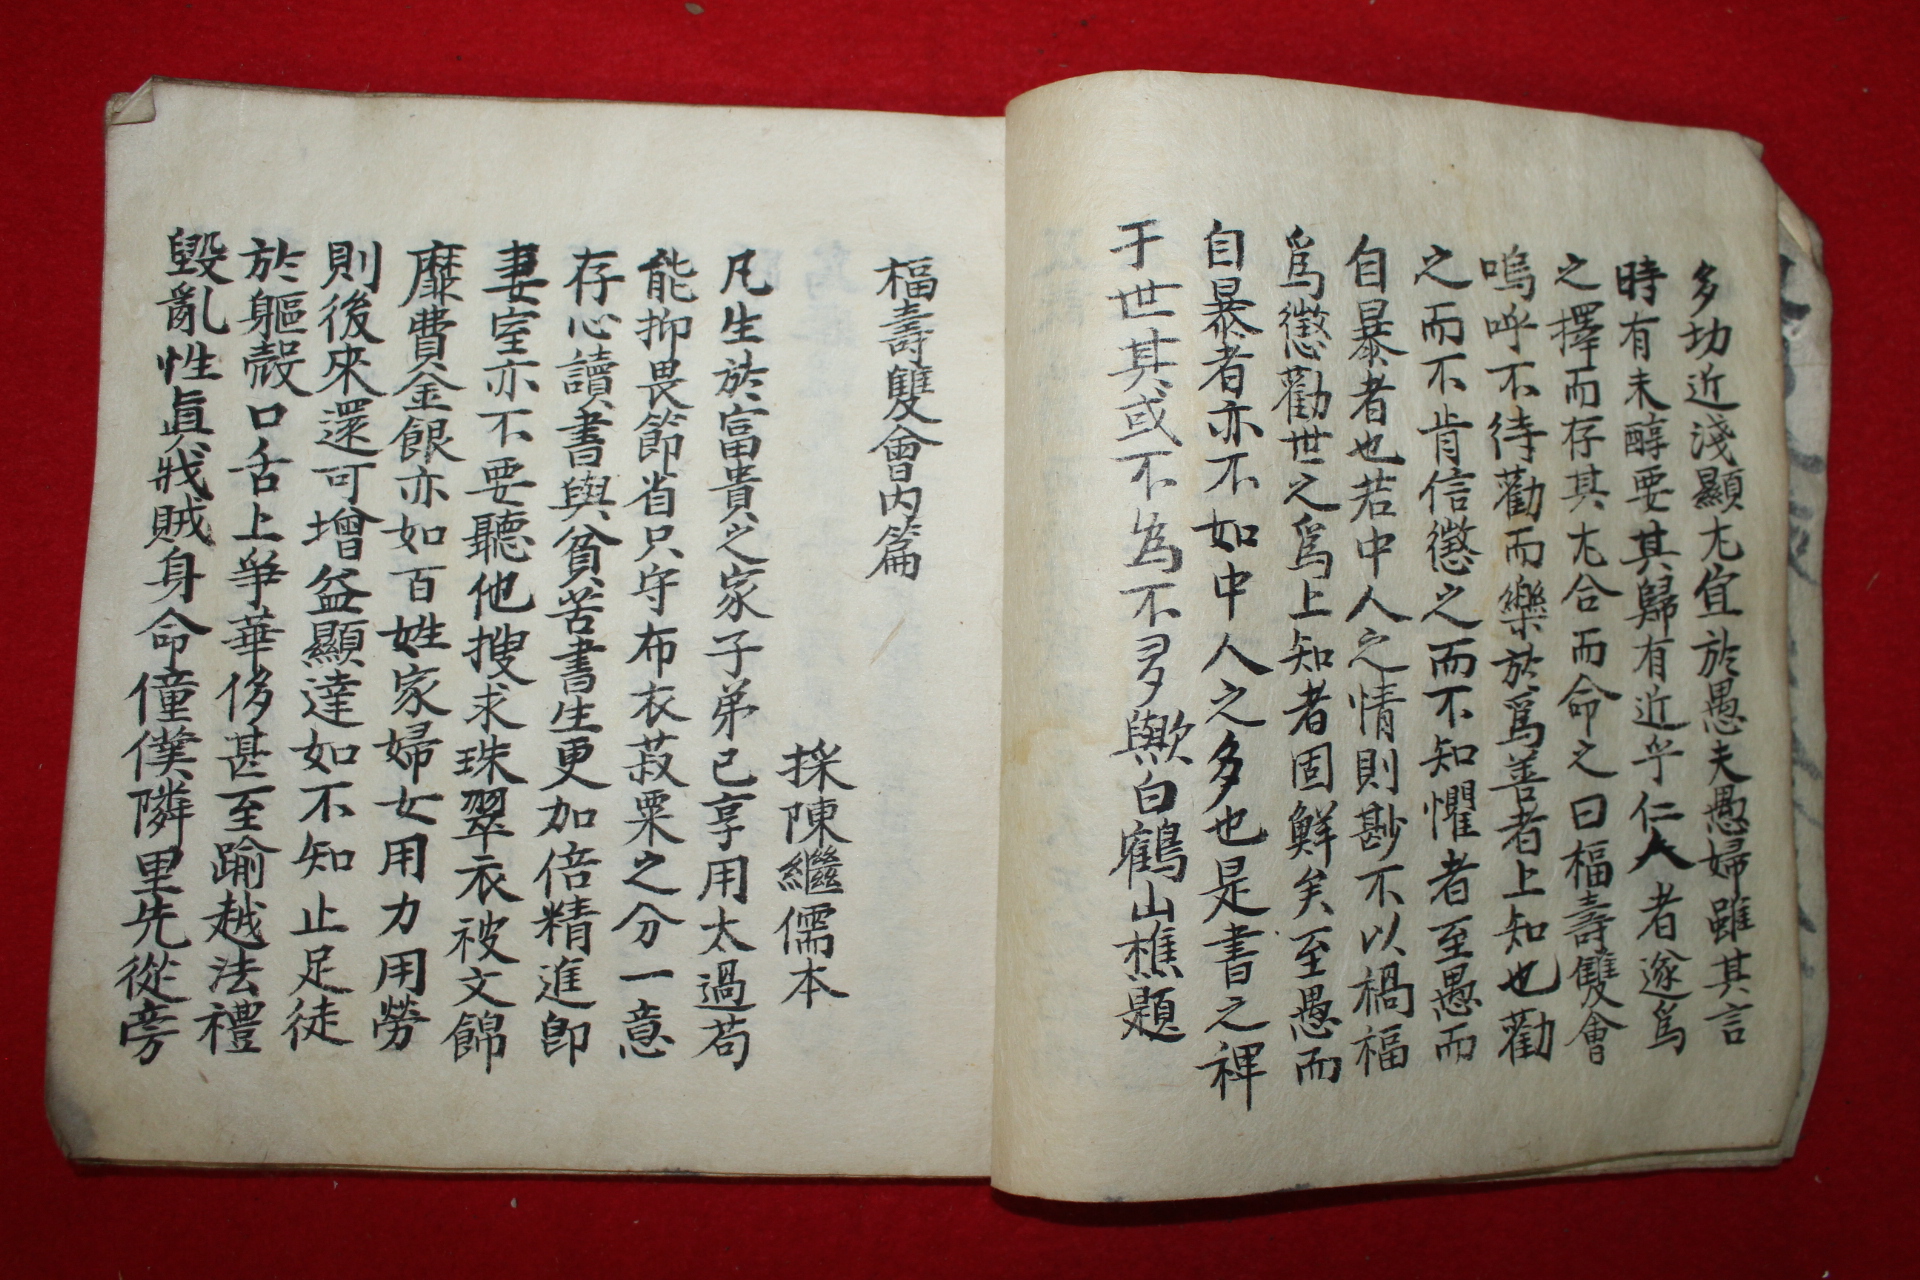 多切近淺顯尤宜於愚夫愚婦雖其言
時有未醇要其歸有近乎仁人者遂爲
之擇而存其尤合而命之曰福壽雙會
嗚呼不待勸而樂於爲善者上知也勸
之而不肯信懲之而不知懼者至愚而
自暴者也若中人之情則尠不以禍福
爲懲勸世之爲上知者固鮮矣至愚而
自暴者亦不如中人之多也是書之裨
于世其或不為不多歟白鶴山樵題
福壽雙會內篇
採陳繼儒本
凡生於富貴之家子弟已享用太過苟
能抑畏節省只守布衣菽粟之分一意
存心讀書與貧苦書生更加倍精進卽
妻室亦不要聽他搜求珠翠衣被文錦
靡費金銀亦如百姓家婦女用力用勞
則後來還可增益顯達如不知止足徒
於軀殼口舌上爭華侈甚至踰越法禮
毁亂性眞戕賊身命僮僕隣里先從旁